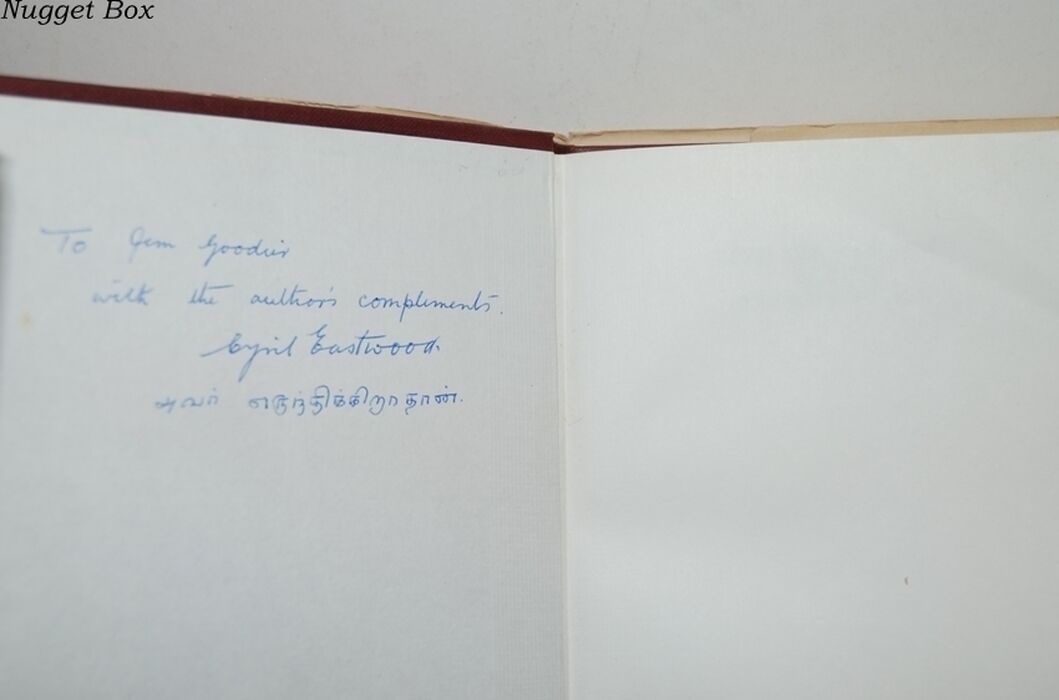 Nugget Box
To Jem Goodier
with the author's compliments.
Cyril Eastwood.
அவர் எருந்திக்கிறாதான்.